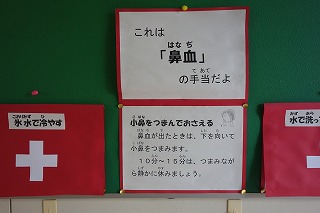 これは
「鼻血」
はなぢ
の手当だよ
てあて
氷水で冷やす
小鼻をつまんでおさえる
鼻血が出たときは、下を向いて
小鼻をつまみます。
10分~15分は、つまみなが
ら静かに休みましょう。
水で洗っ